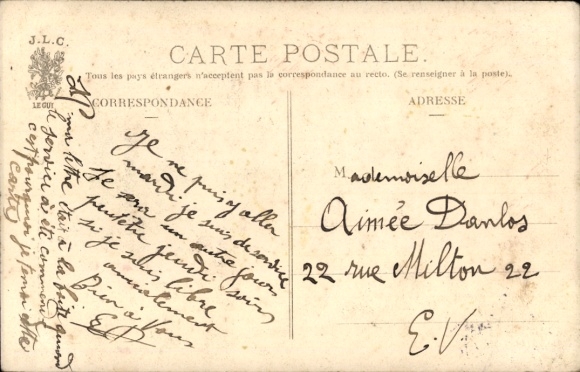 J.L.C.
LE GUI
CARTE POSTALE.
Tous les pays étrangers n'acceptent pas la correspondance au recto. (Se renseigner à la poste).
CORRESPONDANCE
ADRESSE
Je ne puis y aller
mardi je suis de service
Je sera un autre jour
peutêtre jeudi soir
si je suis libre
amicalement
Bien à Vous
ma lettre était à la boîte quand
le service a été
c'est pourquoi je
carte
Mademoiselle
Aimée Danlos
22 rue Milton 22
E.V